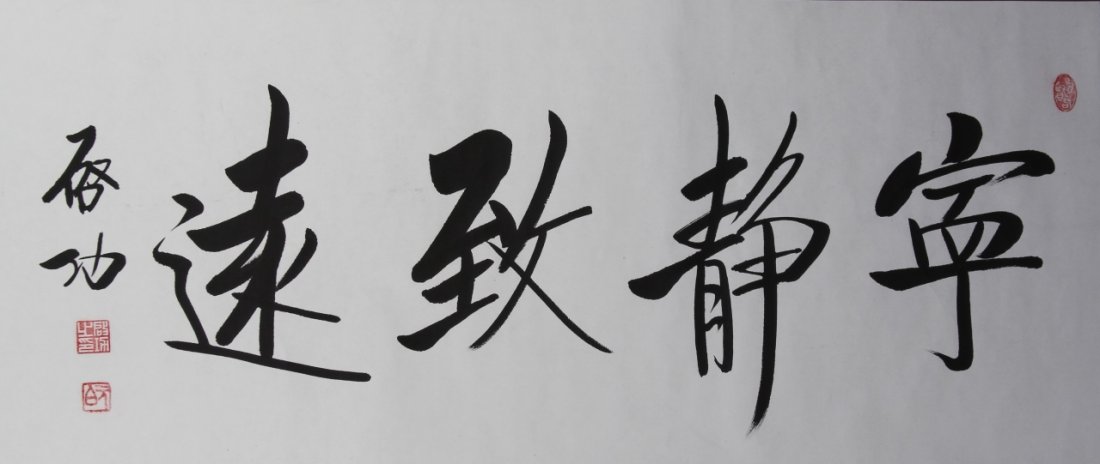 寧静致遠
啓功